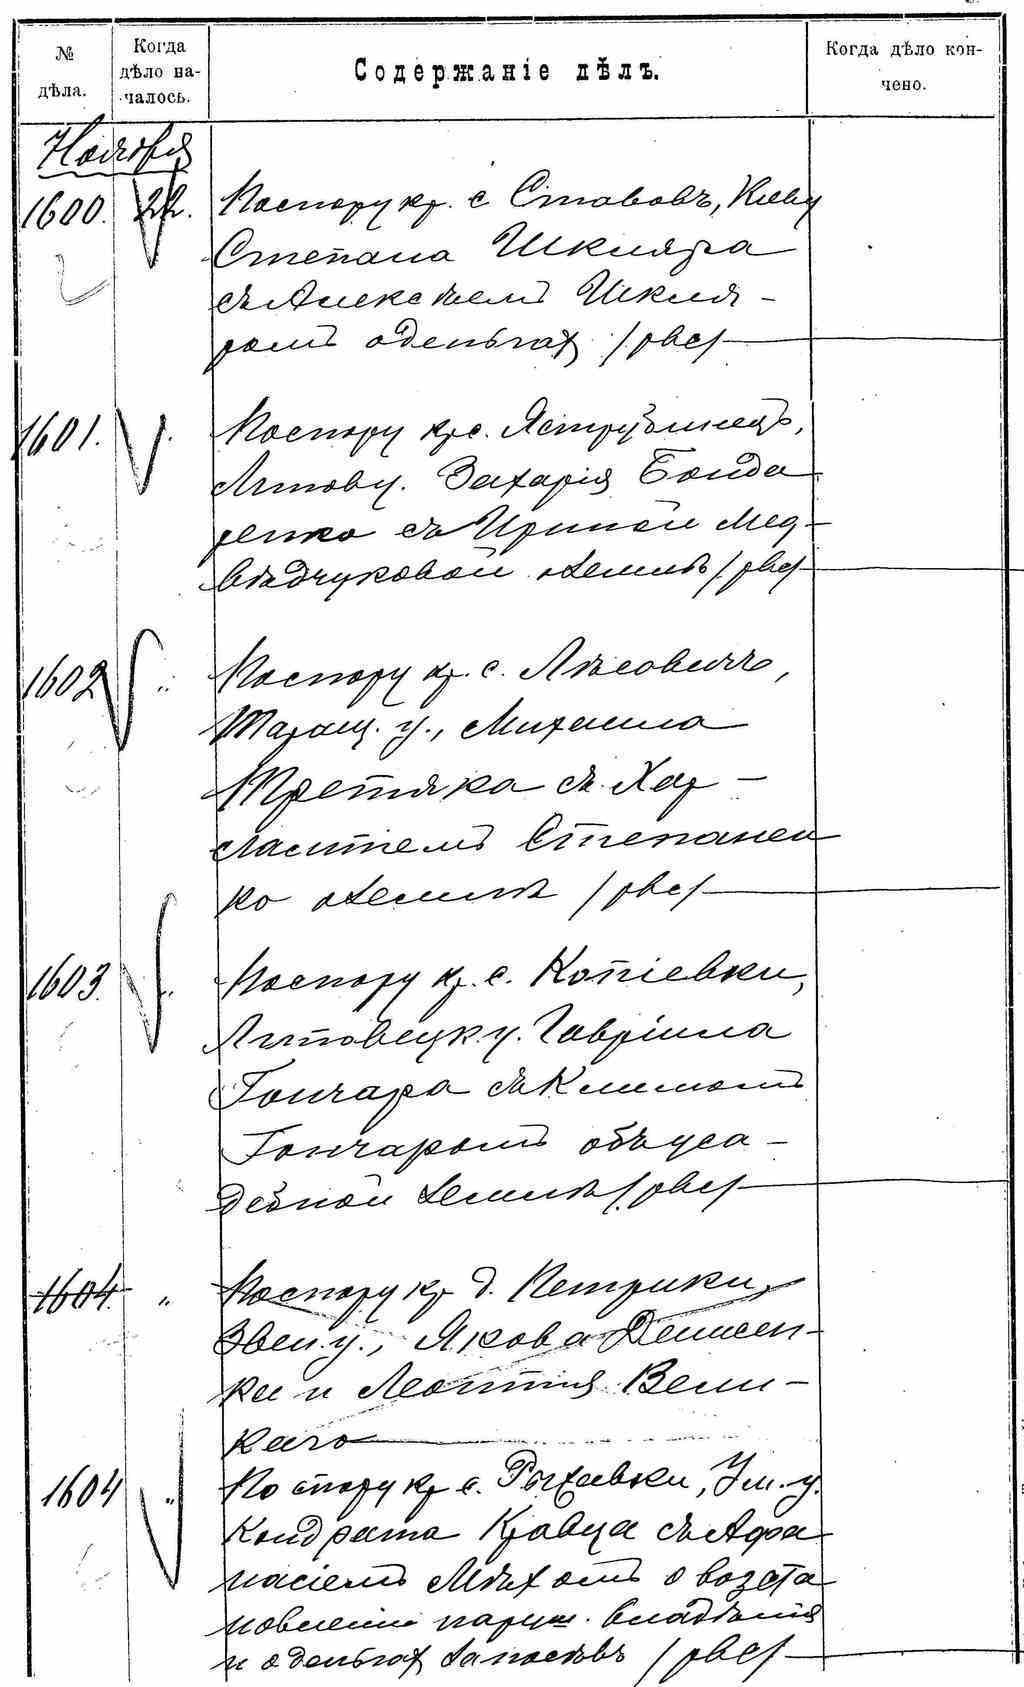 № дѣла.
Когда дѣло началось.
Содержаніе дѣлъ.
Когда дѣло кончено.
Ноября
1600. 22. По спору кр. с. Ставовъ, Киеву
Степана Шкляра
съ Алексѣемъ Шкля-
ромъ о деньгах /рвс/
1601. По спору кр. с. Яструбинецъ,
Липову. Захарія Бонда
ренко съ Ириной Мед-
вѣдчуковой о землѣ /рвс/
1602 " По спору кр. с. Лѣсовичъ,
Таращ. у., Михаила
Третяка съ Хар-
лампіемъ Степанен
ко о землѣ /рвс/
1603. " По спору кр. с. Копіевки,
Липовецк. у. Гавріила
Гончара съ Климомъ
Гончаромъ объ уса-
дебной землѣ /рвс/
1604. " По спору кр. д. Петрики,
Звен. у., Якова Денисен-
ки и Леонтія Вели-
каго
1604 " По спору кр. с. Рыжавки, Ум. у.
Кондрата Кравца съ Афа
насіемъ Мѣхомъ о возста
новленіи наруш. владѣнія
и о деньгах за посѣвъ /рвс/